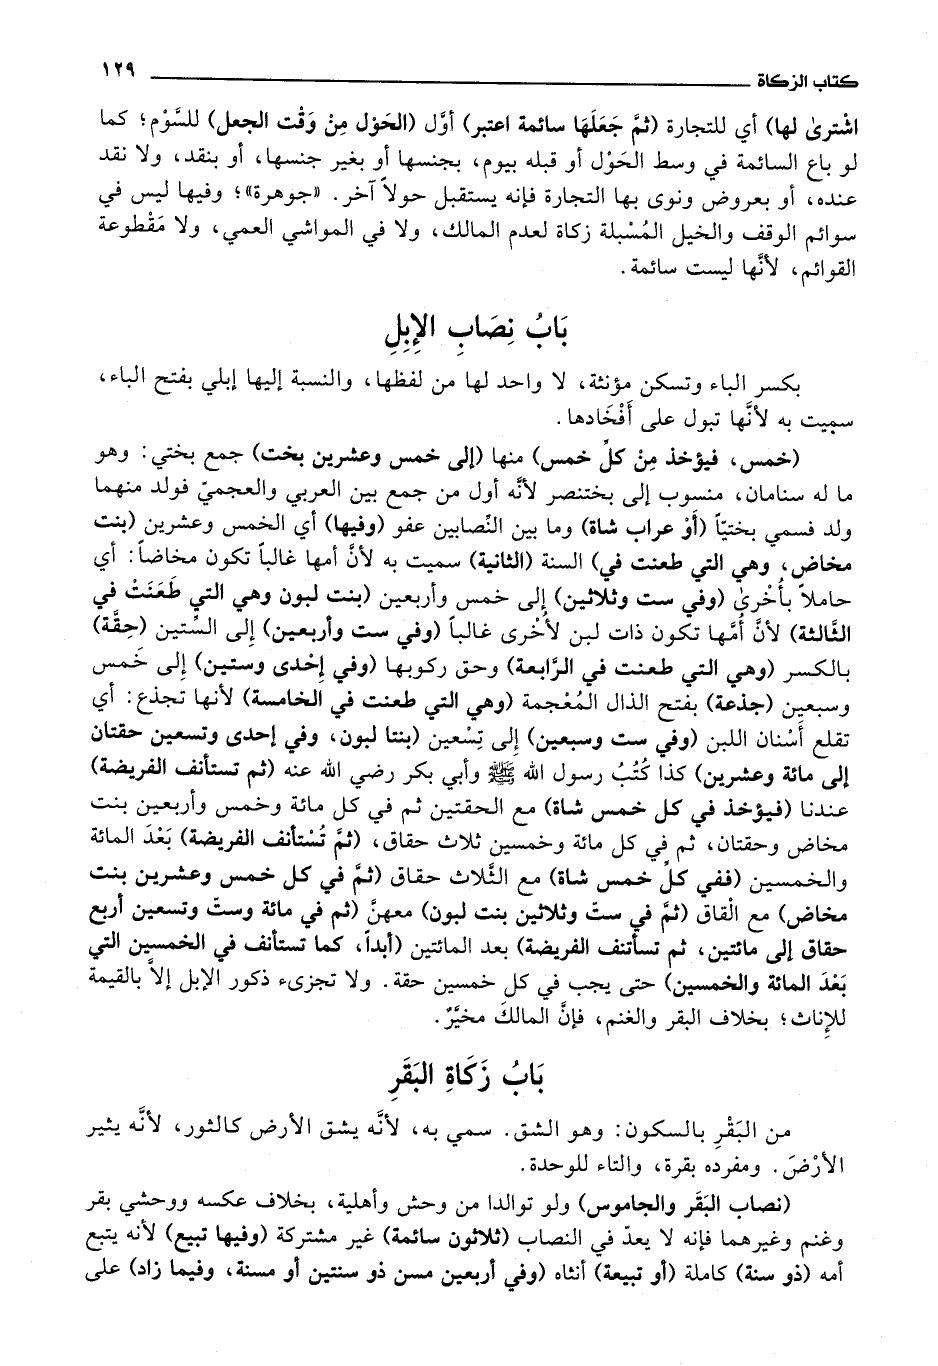 كتاب الزكاة ١٢٩
اشْترىٰ لها) أي للتجارة (ثمَّ جَعَلَهَا سائمة اعتبر) أوَّل (الحَوْل مِنْ وَقْت الجعل) للسَّوْم؛ كما
لو باع السائمة في وسط الحَوْل أو قبله بيوم، بجنسها أو بغير جنسها، أو بنقد، ولا نقد
عنده، أو بعروض ونوى بها التجارة فإنه يستقبل حولاً آخر. «جوهرة»؛ وفيها ليس في
سوائم الوقف والخيل المُسْبلة زكاة لعدم المالك، ولا في المواشي العمي، ولا مَقْطوعة
القوائم، لأنَّها ليست سائمة.
بَابُ نِصَابِ الإِبِلِ
بكسر الباء وتسكن مؤنثة، لا واحد لها من لفظها، والنسبة إليها إبلي بفتح الباء،
سميت به لأنَّها تبول على أَفْخَادها.
(خمس، فيؤخذ مِنْ كلِّ خمس) منها (إلى خمس وعشرين بخت) جمع بختي: وهو
ما له سنامان، منسوب إلى بختنصر لأنَّه أول من جمع بين العربي والعجميّ فولد منهما
ولد فسمي بختيّاً (أوْ عراب شاة) وما بين النِّصابين عفو (وفيها) أي الخمس وعشرين (بنت
مخاض، وهي التي طعنت في) السنة (الثانية) سميت به لأنَّ أمها غالباً تكون مخاضاً: أي
حاملاً بأُخْرىٰ (وفي ست وثلاثين) إلى خمس وأربعين (بنت لبون وهي التي طَعَنَتْ في
الثَّالثة) لأنَّ أُمَّها تكون ذات لبن لأُخْرى غالباً (وفي ست وأربعين) إلى السِّتين (حِقَّة)
بالكسر (وهي التي طعنت في الرَّابعة) وحق ركوبها (وفي إحْدى وستين) إلى خَمس
وسبعين (جذعة) بفتح الذال المُعْجمة (وهي التي طعنت في الخامسة) لأنها تجذع: أي
تقلع أَسْنان اللبن (وفي ست وسبعين) إلى تِسْعين (بنتا لبون، وفي إحدى وتسعين حقتان
إلى مائة وعشرين) كذا كُتُبُ رسول الله ﷺ وأبي بكر رضي الله عنه (ثم تستأنف الفريضة)
عندنا (فيؤخذ في كل خمس شاة) مع الحقتين ثم في كل مائة وخمس وأربعين بنت
مخاض وحقتان، ثم في كل مائة وخمسين ثلاث حقاق، (ثمَّ تُسْتأنف الفريضة) بَعْدَ المائة
والخمسين (ففي كلِّ خمس شاة) مع الثَّلاث حقاق (ثمَّ في كل خمس وعشرين بنت
مخاض) مع الْقاق (ثمَّ في ستّ وثلاثين بنت لبون) معهنَّ (ثم في مائة وستّ وتسعين أربع
حقاق إلى مائتين، ثم تستأنف الفريضة) بعد المائتين (أبداً، كما تستأنف في الخمسين التي
بَعْدَ المائة والخمسين) حتى يجب في كل خمسين حقة. ولا تجزىء ذكور الإبل إلاَّ بالقيمة
للإِناث؛ بخلاف البقر والغنم، فإنَّ المالكَ مخيَّرٌ.
بَابُ زَكَاةِ البَقَرِ
من البَقْرِ بالسكون: وهو الشق. سمي به، لأنَّه يشق الأرض كالثور، لأنَّه يثير
الأرْضَ. ومفرده بقرة، والتاء للوحدة.
(نصاب البَقَر والجاموس) ولو توالدا من وحش وأهلية، بخلاف عكسه ووحشي بقر
وغنم وغيرهما فإنه لا يعدّ في النصاب (ثلاثون سائمة) غير مشتركة (وفيها تبيع) لأنه يتبع
أمه (ذو سنة) كاملة (أو تبيعة) أنثاه (وفي أربعين مسن ذو سنتين أو مسنة، وفيما زاد) على